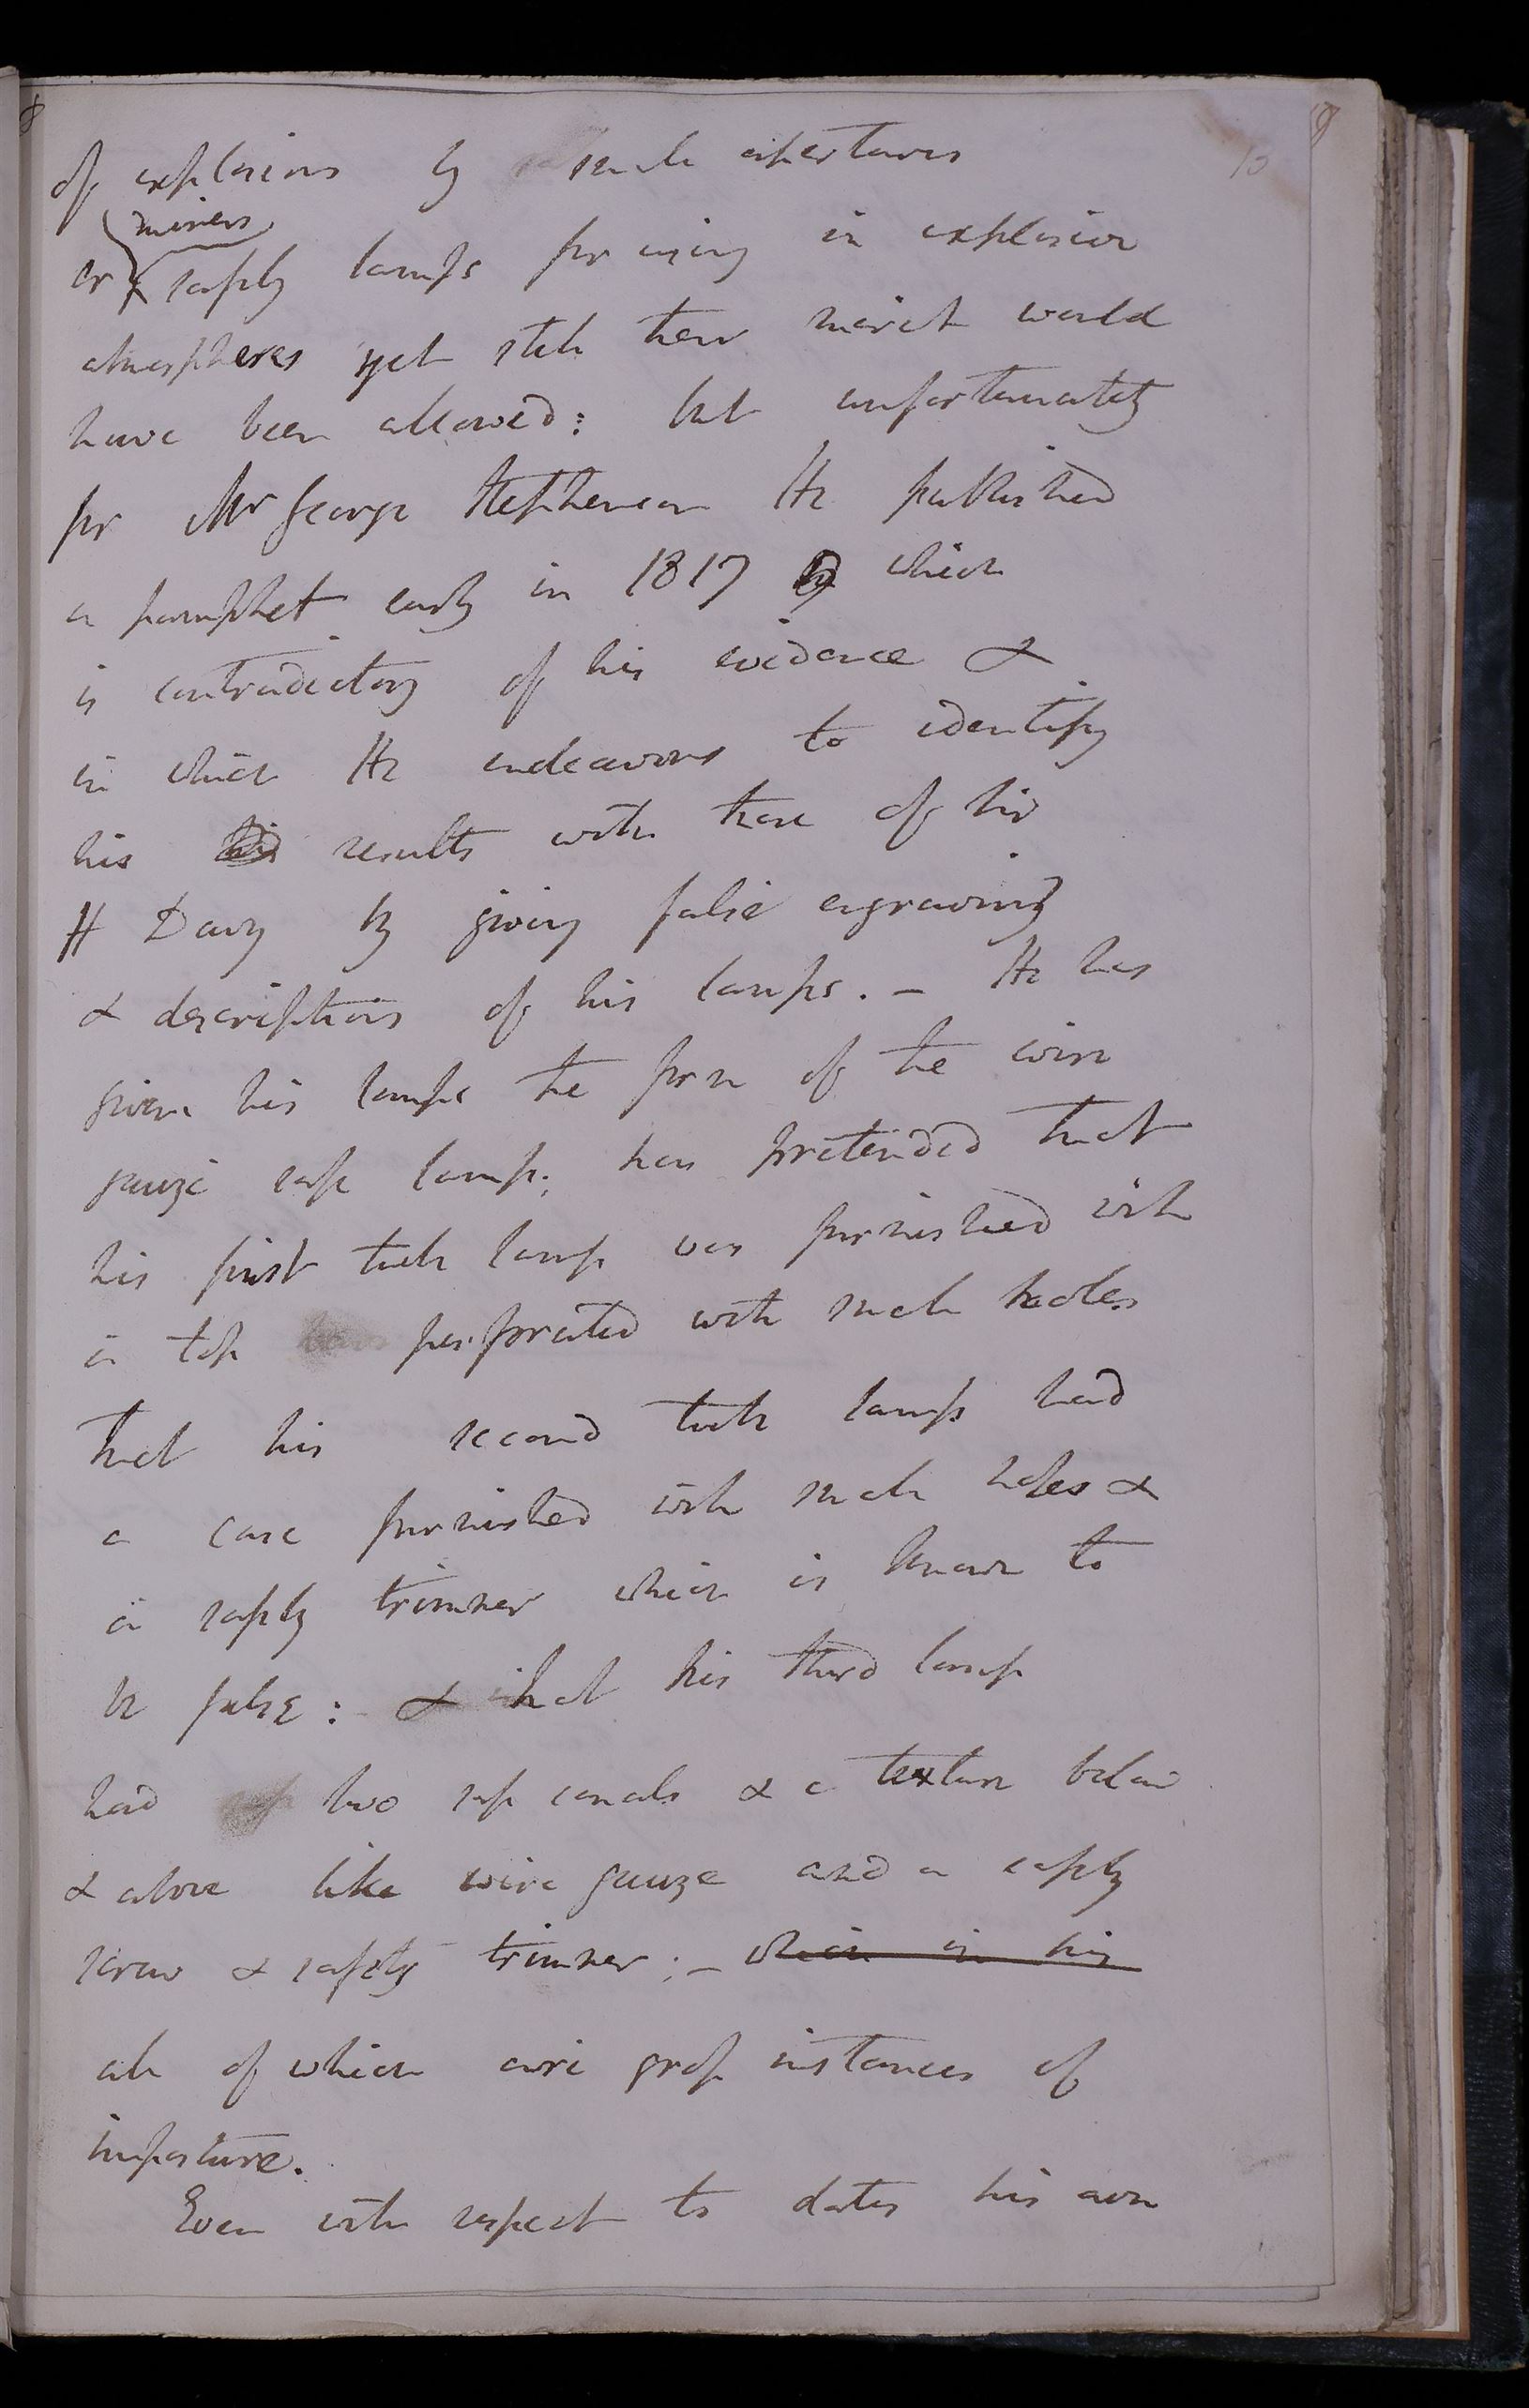 of explosions by small apertures
miners
or safety lamps for using in explosive
atmospheres yet still their merit would
have been allowed: but unfortunately
for Mr George Stephenson He published
a pamphlet early in 1817 which
is contradictory of his evidence &
in which He endeavours to identify
his results with those of Sir
H Davy by giving false engravings
& descriptions of his lamps. – He has
given his lamps the form of the wire
gauze safe lamp; has pretended that
his first tube lamp was furnished with
a top perforated with small holes
that his second tube lamp had
a case furnished with small holes &
a safety trimmer which is known to
be false: & that his third lamp
had two safe canals & a texture below
& above like wire gauze and a safety
screw & safety trimmer; – which in his
all of which are gross instances of
imposture.
Even with respect to dates his own